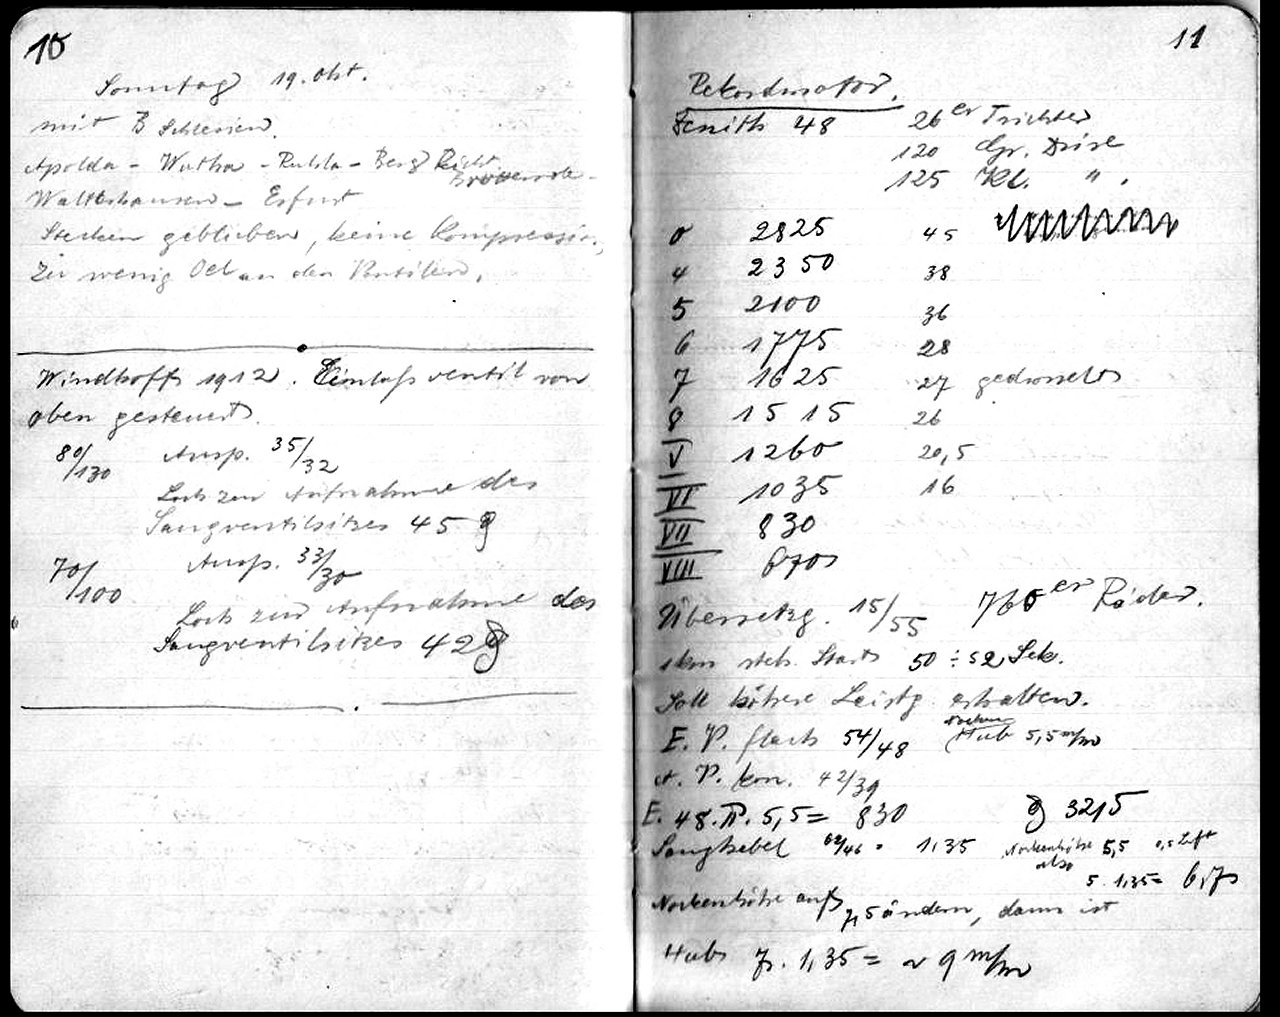 10
Sonntag 19. Okt.
mit B Schlesien.
Apolda - Wutha - Ruhla - Berg Richt.
Brotterode -
Waltershausen - Erfurt
Stecken geblieben, keine Kompression,
Zu wenig Oel an den Ventilen.
Windhoff 1912. Einlaß ventil von
oben gesteuert.
80/130 Ausp. 35/32
Loch zur Aufnahme des
Saugventilsitzes 45 ø
70/100 Ausp. 33/30
Loch zur Aufnahme des
Saugventilsitzes 42 ø
11
Rekordmotor.
Zenith 48 26er Trichter
120 Gr. Düse
125 Kl. " .
0 2825 45
4 2350 38
5 2100 36
6 1775 28
7 1625 27 gedrosselt
8 1515 26
V 1260 20,5
VI 1035 16
VII 830
VIII 670
Übersetzg. 15/55 760er Räder.
1km steh. Start 50 ÷ 52 Sek.
Soll höhere Leistg erhalten.
E. V. flach 54/48 Nocken Hub 5,5 m/m
A. V. kon. 42/39
E. 48.π. 5,5 = 830 ø 32,5
Saughebel 62/46 = 1,35 Nockenhöhe 5,5 0,5 Luft
also 5 . 1,35 = 6,75
Nockenhöhe auf 7,5 ändern, dann ist
Hub 7. 1,35 = ~ 9 m/m